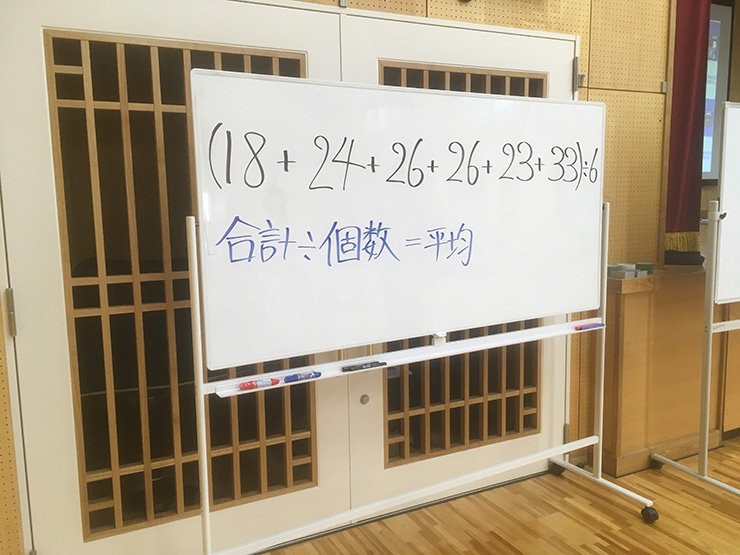 (18+24+26+26+23+33)÷6
合計÷個数=平均